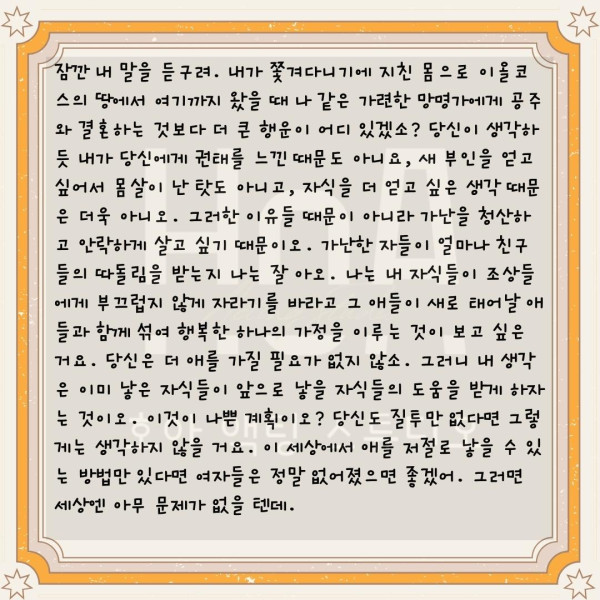 잠깐 내 말을 듣구려. 내가 쫓겨다니기에 지친 몸으로 이올코
스의 땅에서 여기까지 왔을 때 나 같은 가련한 망명가에게 공주
와 결혼하는 것보다 더 큰 행운이 어디 있겠소? 당신이 생각하
듯 내가 당신에게 권태를 느낀 때문도 아니요, 새 부인을 얻고
싶어서 몸살이 난 탓도 아니고, 자식을 더 얻고 싶은 생각 때문
은 더욱 아니오. 그러한 이유들 때문이 아니라 가난을 청산하
고 안락하게 살고 싶기 때문이오. 가난한 자들이 얼마나 친구
들의 따돌림을 받는지 나는 잘 아오. 나는 내 자식들이 조상들
에게 부끄럽지 않게 자라기를 바라고 그 애들이 새로 태어날 애
들과 함께 섞여 행복한 하나의 가정을 이루는 것이 보고 싶은
거요. 당신은 더 애를 가질 필요가 없지 않소. 그러니 내 생각
은 이미 낳은 자식들이 앞으로 낳을 자식들의 도움을 받게 하자
는 것이오. 이것이 나쁜 계획이오? 당신도 질투만 없다면 그렇
게는 생각하지 않을 거요. 이 세상에서 애를 저절로 낳을 수 있
는 방법만 있다면 여자들은 정말 없어졌으면 좋겠어. 그러면
세상엔 아무 문제가 없을 텐데.
HnA
호아 액팅 스튜디오